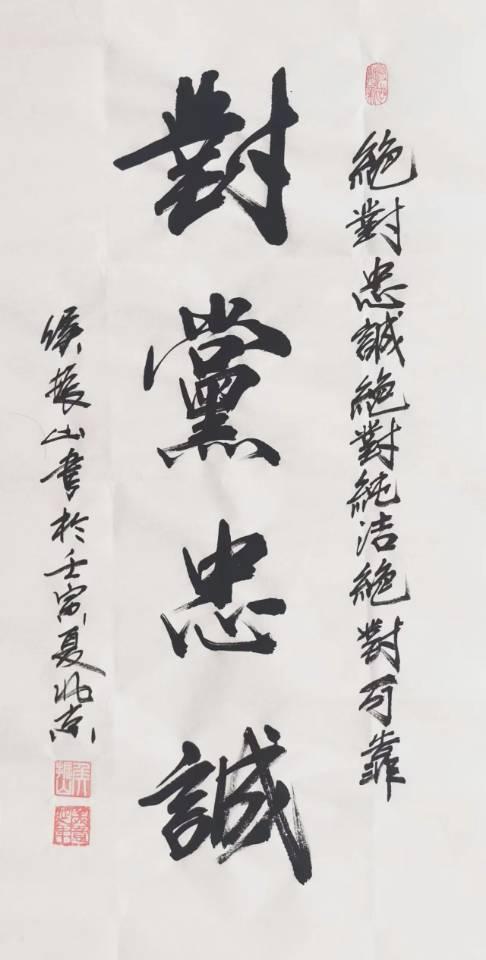 絶對忠誠絶對純洁絶對可靠
對黨忠誠
侯振山書於壬寅夏北京